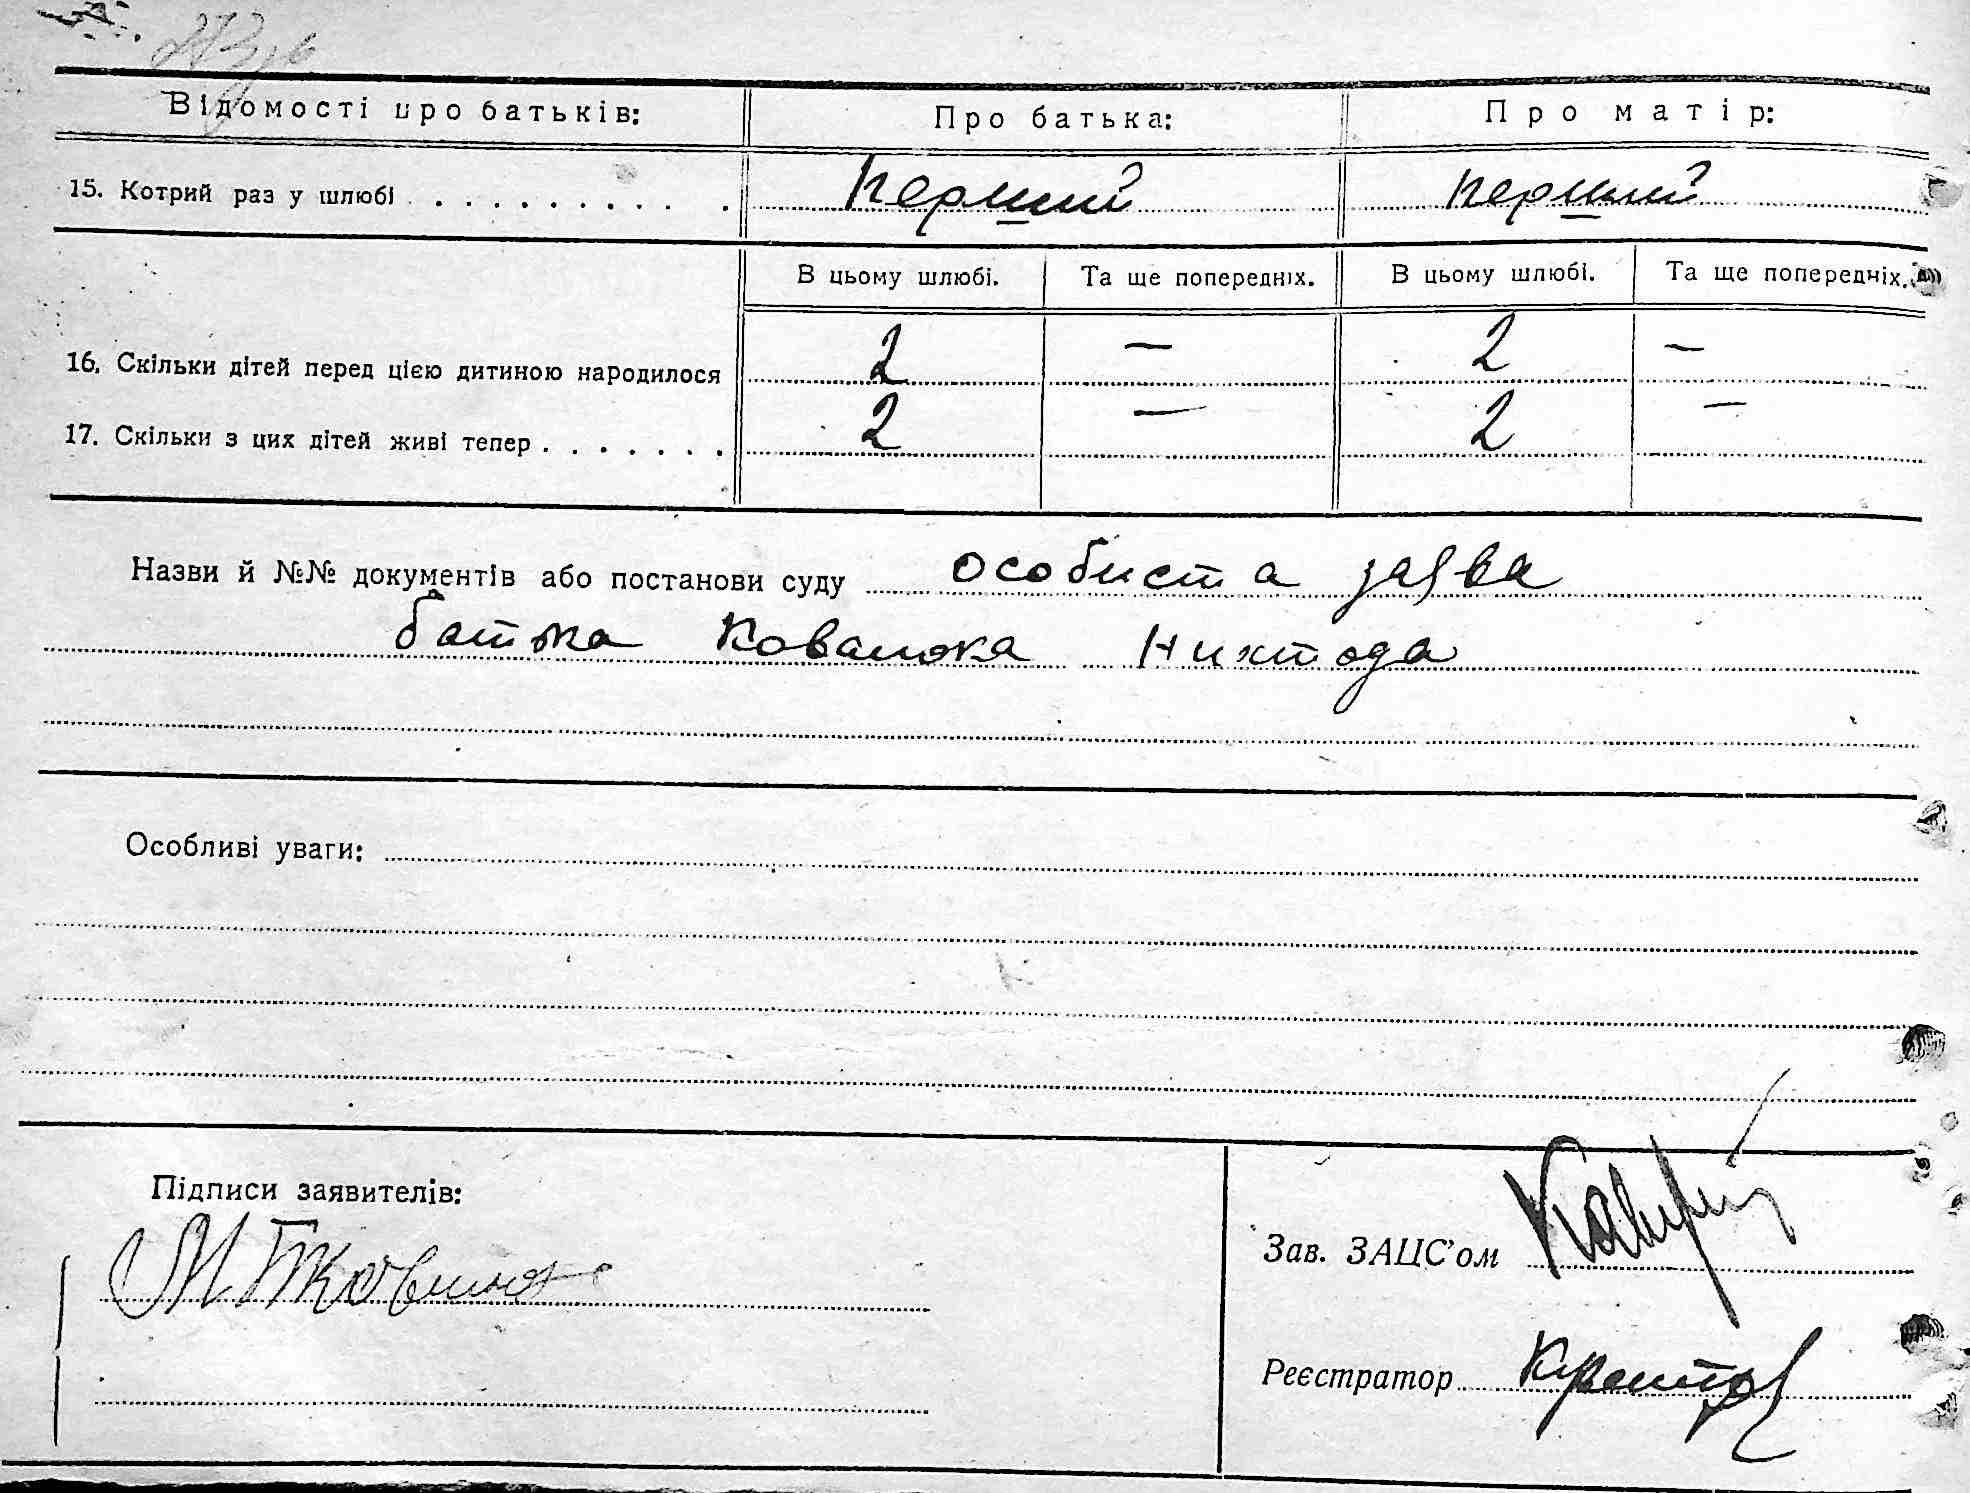 Відомості про батьків: Про батька: Про матір:
15. Котрий раз у шлюбі . . . . . . . . . . . Перший Перший
В цьому шлюбі. Та ще попередніх. В цьому шлюбі. Та ще попередніх.
16. Скільки дітей перед цією дитиною народилося 2 — 2 —
17. Скільки з цих дітей живі тепер . . . . . . . 2 — 2 —
Назви й №№ документів або постанови суду особиста заява
батька
Особливі уваги:
Підписи заявителів:
Зав. ЗАЦС'ом
Реєстратор